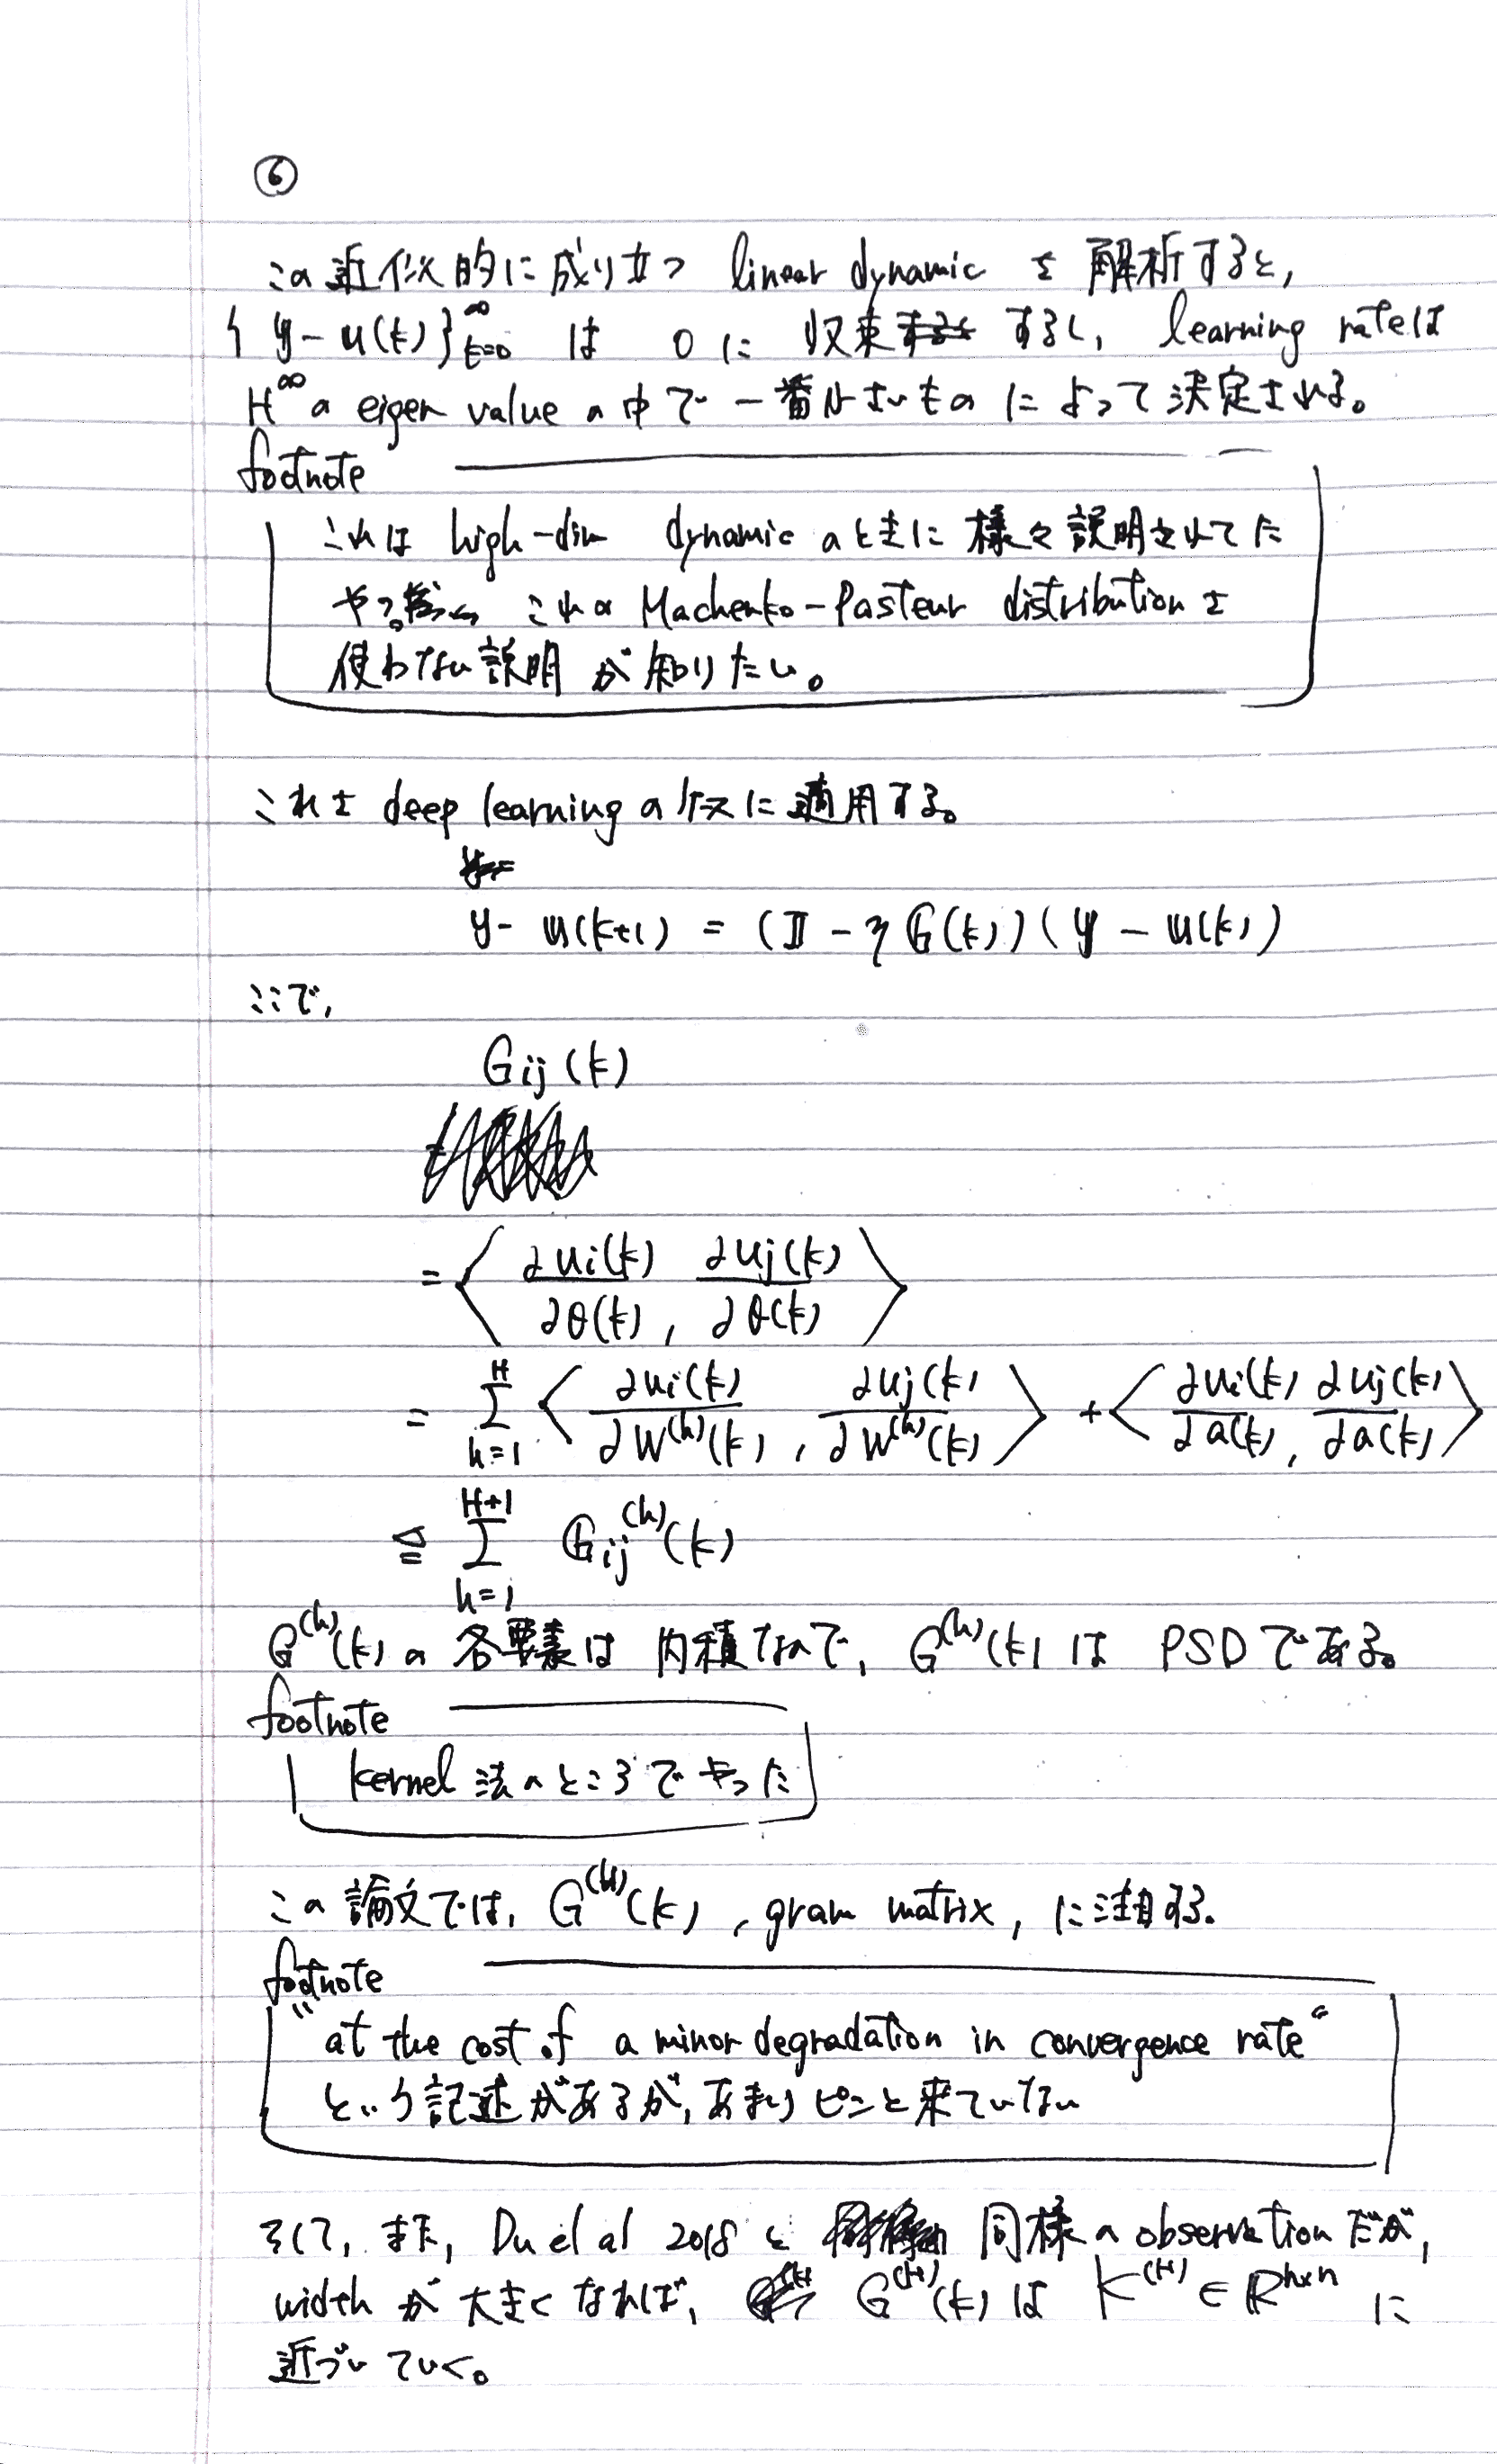 ⑥
この近似的に成り立つ linear dynamic を 解析すると,
{ y - u(k) }_{k=0}^∞ は 0 に 収束 するし, learning rateは
H^∞ の eigen value の中で一番小さいものによって決定される。
footnote
これは high-dim dynamic のときに様々説明されてた
やつ。 これの Machenko-Pasteur distribution を
使わない説明 が知りたい。
これを deep learning のケースに適用する。
y - u(k+1) = (I - η G(k)) (y - u(k))
ここで,
G_{ij}(k)
= < ∂u_i(k)/∂θ(k) , ∂u_j(k)/∂θ(k) >
= Σ_{h=1}^{H} < ∂u_i(k)/∂W^{(h)}(k) , ∂u_j(k)/∂W^{(h)}(k) > + < ∂u_i(k)/∂a(k) , ∂u_j(k)/∂a(k) >
≜ Σ_{h=1}^{H+1} G_{ij}^{(h)}(k)
G^{(h)}(k) の 各要素は 内積なので, G^{(h)}(k) は PSD である。
footnote
kernel 法のところでやった
この論文では, G^{(H)}(k) , gram matrix, に注目する.
footnote
"at the cost of a minor degradation in convergence rate"
という記述があるが, あまりピンと来ていない
そして, また, Du el al 2018 と 同様の observation だが,
width が 大きくなれば, G^{(H)}(k) は K^{(H)} ∈ R^{n×n} に
近づいていく。